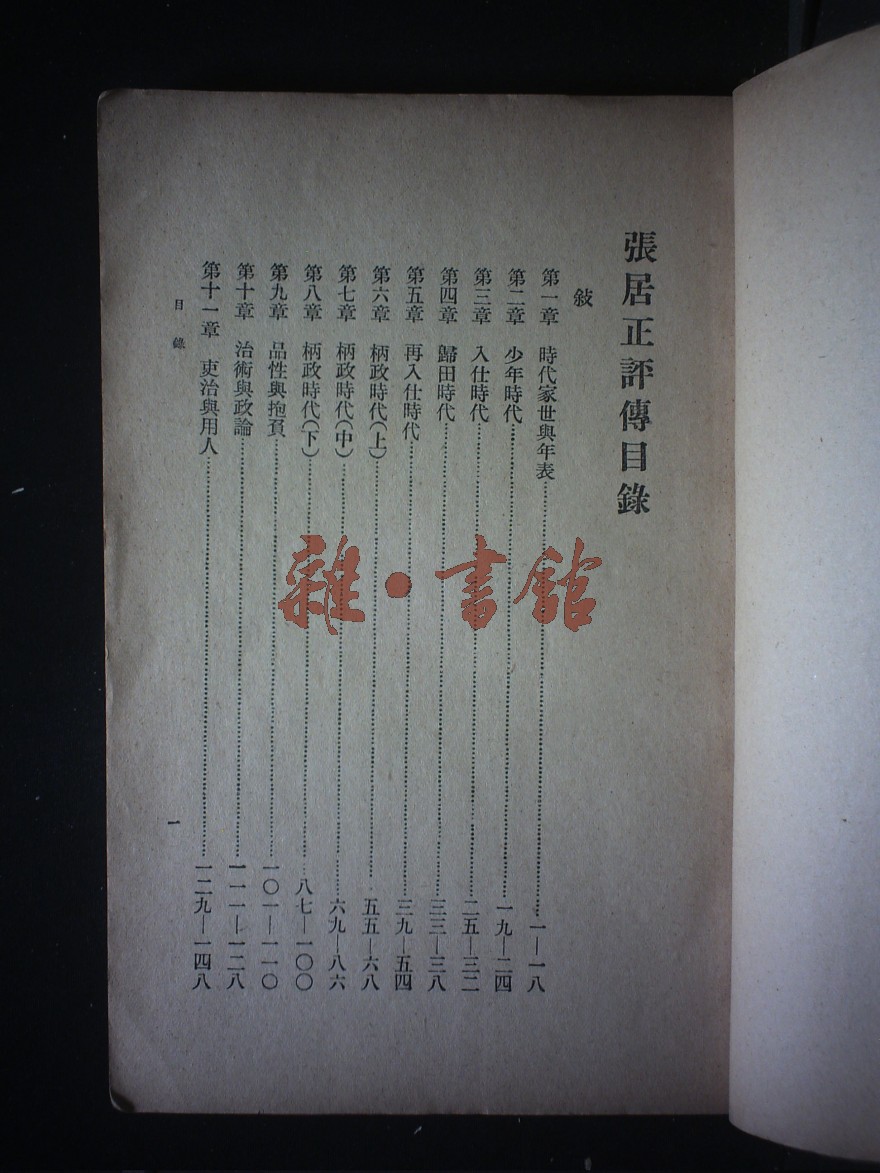 張居正評傳目錄
敍
第一章 時代家世與年表……一—一八
第二章 少年時代……一九—二四
第三章 入仕時代……二五—三二
第四章 歸田時代……三三—三八
第五章 再入仕時代……三九—五四
第六章 柄政時代(上)……五五—六八
第七章 柄政時代(中)……六九—八六
第八章 柄政時代(下)……八七—一〇〇
第九章 品性與抱負……一〇一—一一〇
第十章 治術與政論……一一一—一二八
第十一章 吏治與用人……一二九—一四八
目錄
一
雜·書館